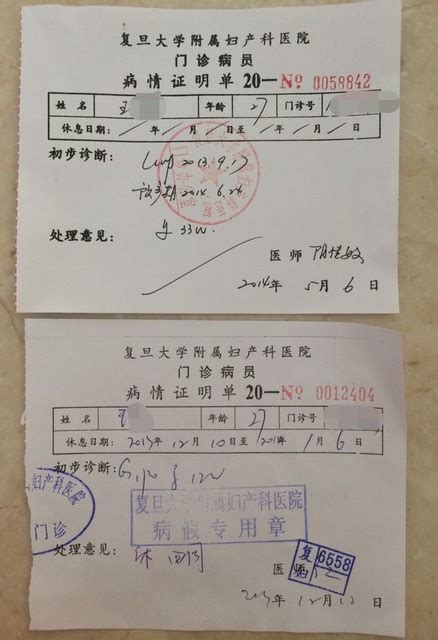 复旦大学附属妇产科医院
门诊病员
病情证明单 20— No 0058842
姓名 王 年龄 27 门诊号
休息日期: 年 月 日至 年 月 日
初步诊断: Lmp 2013.9.17
预产期 2014.6.24
处理意见: 孕33W.
医师
2014年 5月 6日
复旦大学附属妇产科医院
门诊病员
病情证明单 20— No 0012404
姓名 王 年龄 27 门诊号
休息日期: 2013年 12月 10日至 2014年 1月 6日
初步诊断: G1P0 孕12W
妇产科医院
门诊
复旦大学附属妇产科医院
病假专用章
处理意见: 休
复 6558
医师
2013年 12月 日